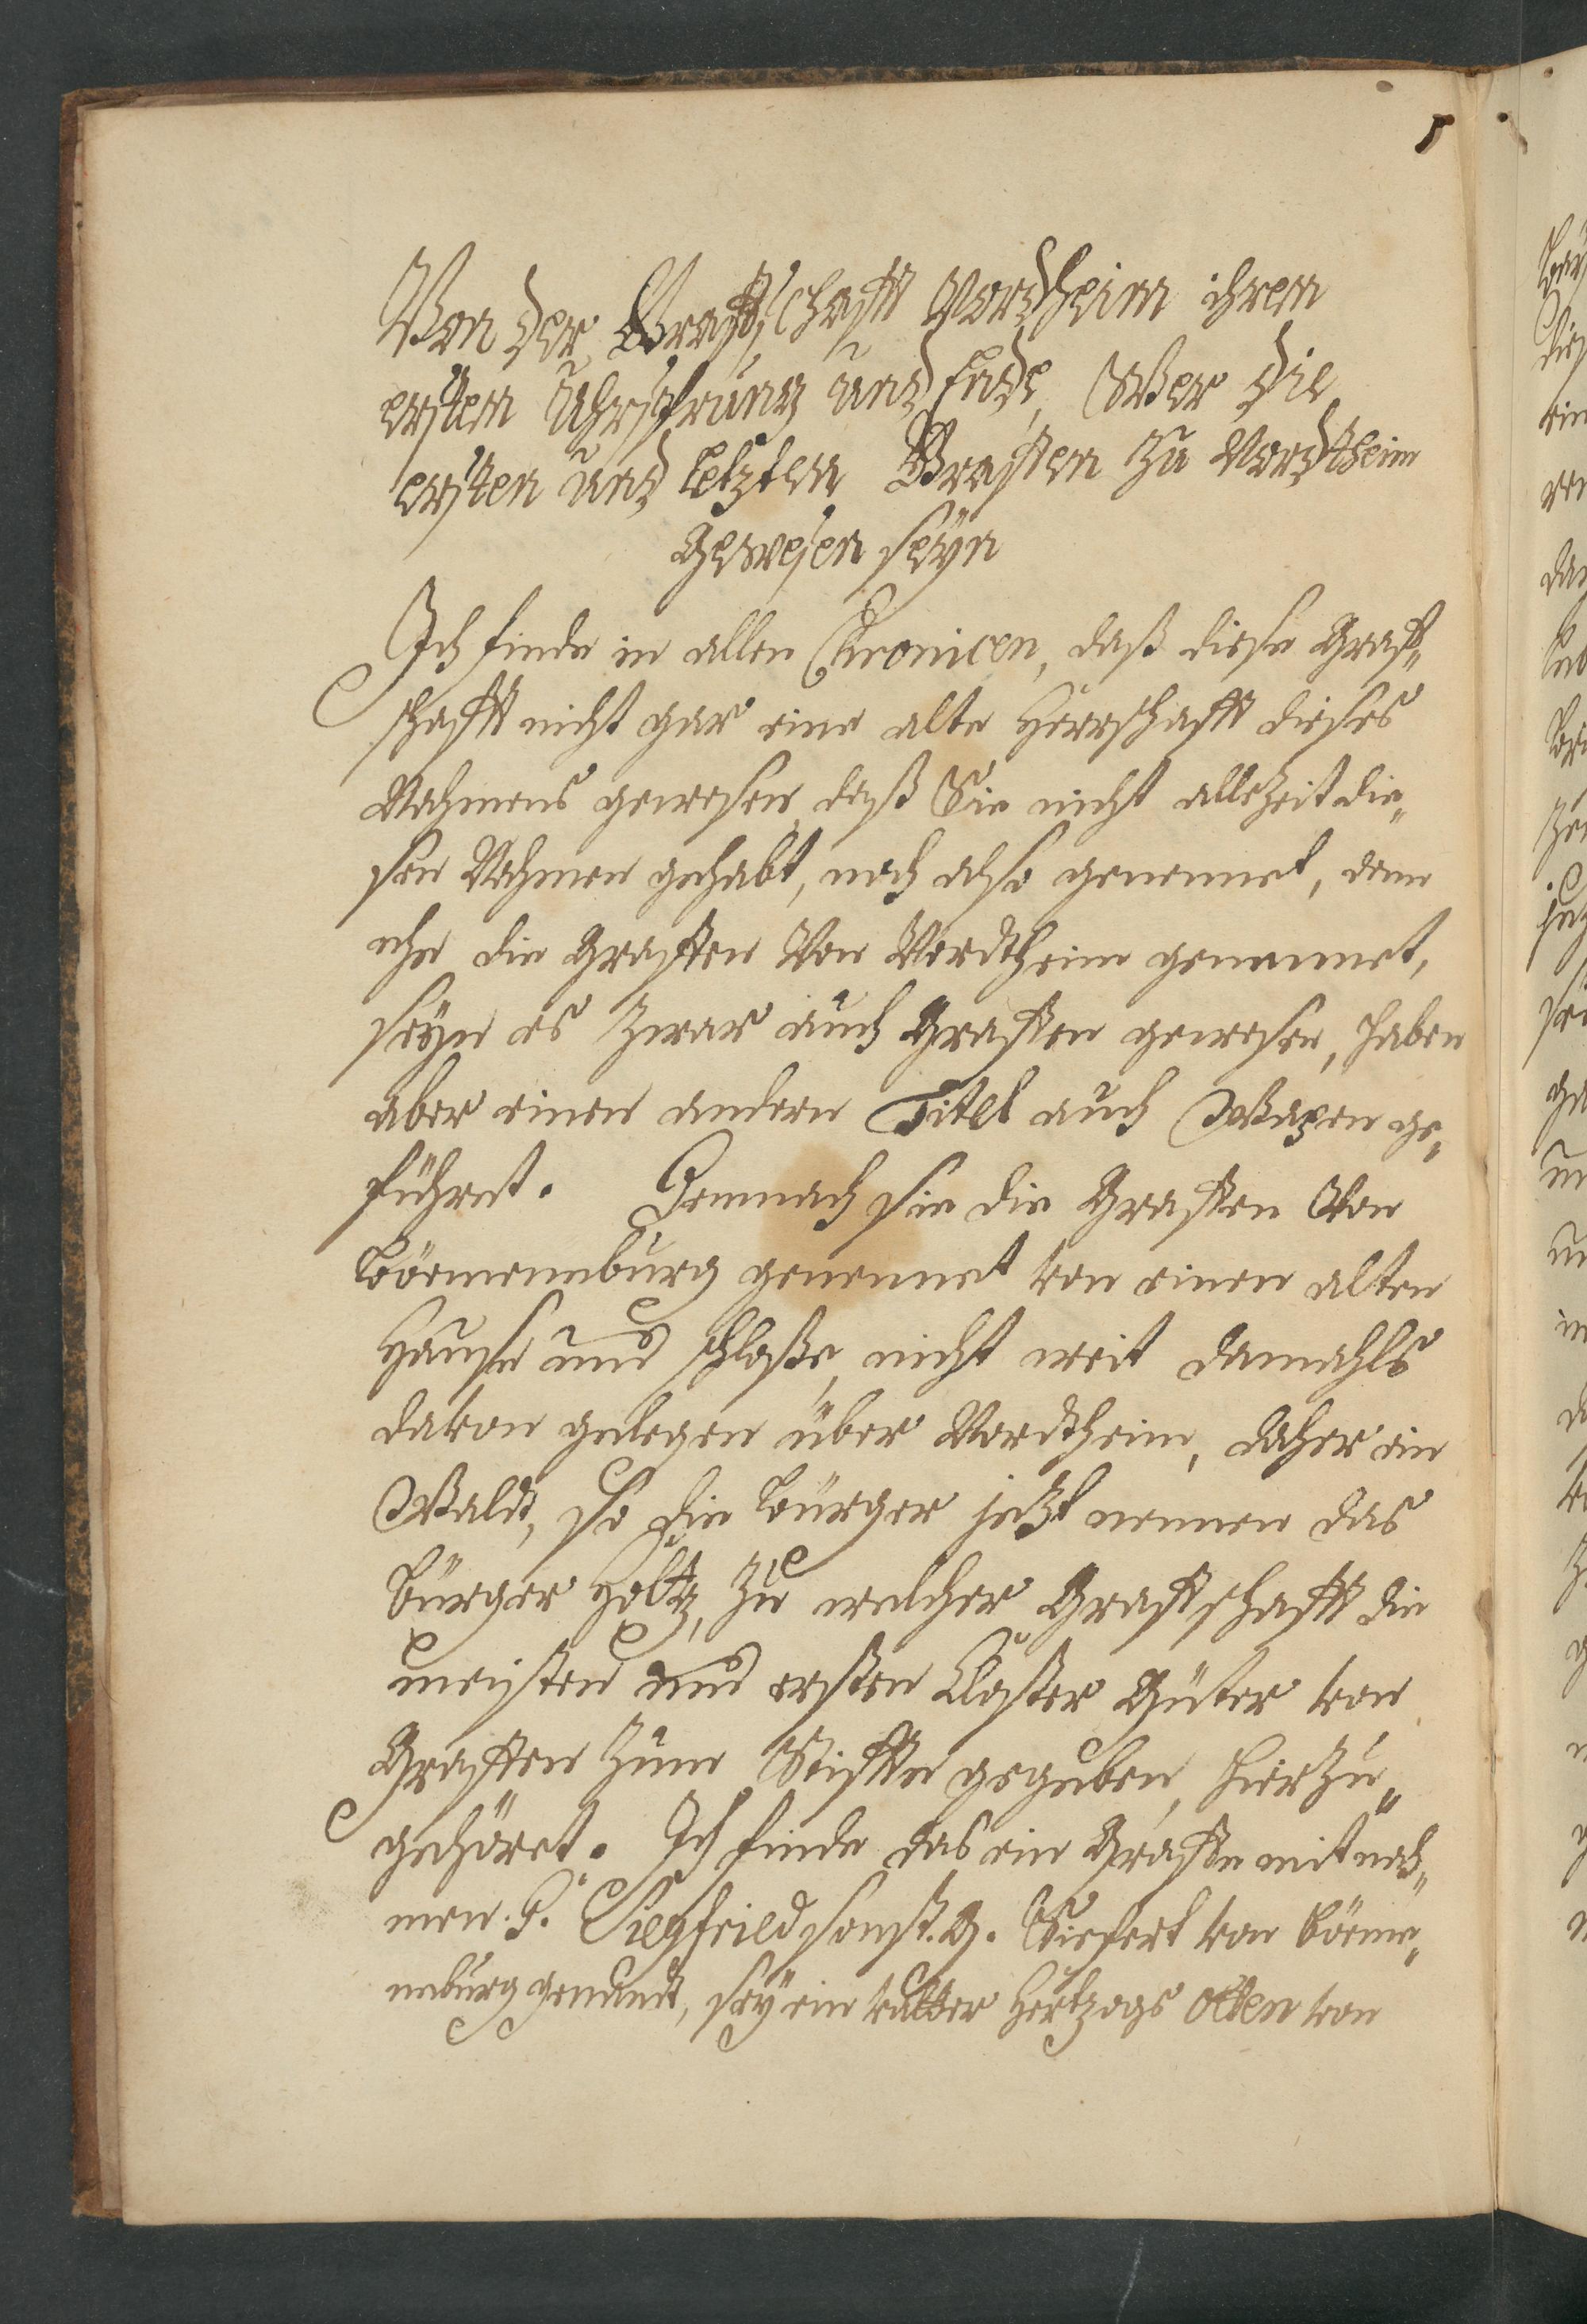 5
Von der Graffschafft Nordheim ihrem
ersten Uhrsprung und Ende, Wer die
ersten und letzten Graffen zu Nordtheim
gewesen seÿn
Ich finde in allen Chronicen, daß diese Graff-
schafft nicht gar eine alte Herrschafft dieses
Nahmens gewesen, daß Sie nicht allezeit die-
sen Nahmen gehabt, noch also genennet, denn
ehe die Graffen Von Nordtheim genennet,
seÿn es zwar auch Graffen gewesen, haben
aber einen andern Titel auch Wapen ge-
führet. Demnach sie die Graffen Von
Böemeneburg genennet von einen alten
Hause und schloße, nicht weit damahls
davon gelegen über Nordtheim, daher ein
Waldt, so die bürger jetzt nennen das
bürger Holtz, zu welcher Graffschafft die
meisten und ersten Closter Güter von
Graffen zum Stiffte gegeben, hierzu-
gehöret. Ich finde das ein Graffe mit nah-
men G. Siegfried sonst G. Siefert von böeme-
neburg genandt, seÿ ein vatter Hertzogs Otten von